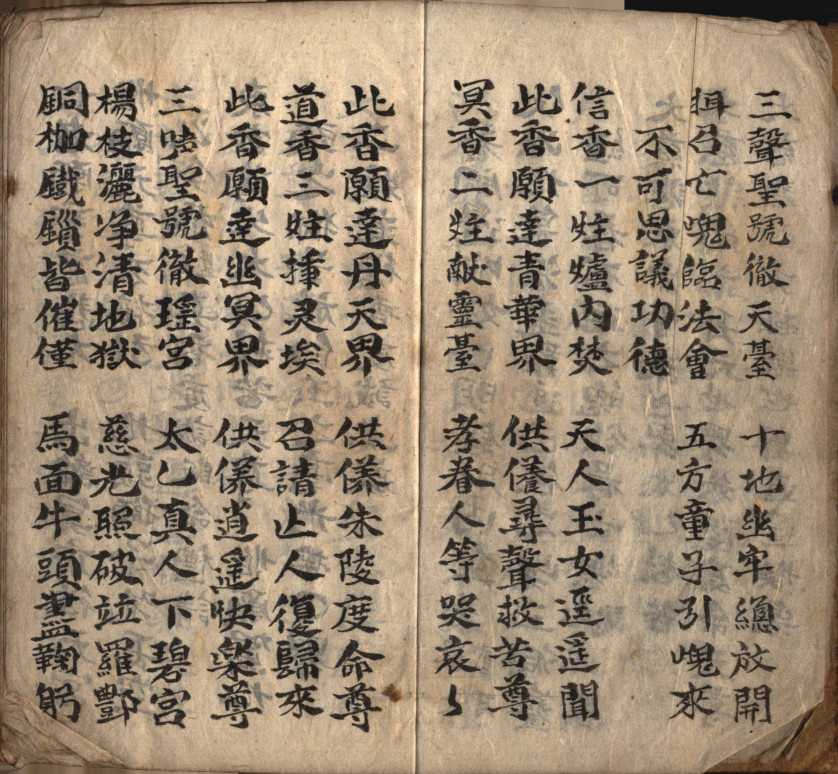 三聲聖號徹天臺　十地幽牢總放開
召亡魂臨法會　五方童子引魂來
不可思議功德
信香一炷爐内焚　天人玉女逕遥聞
此香願達青華界　供養尋聲救苦尊
冥香二炷献靈臺　孝眷人等哭哀〻
此香願達丹天界　供养朱陵度命尊
道香三炷插灵埃　召請亾人復歸來
此香願達幽冥界　供养逍遥快樂尊
三聖號徹瑶宮　太乙真人下碧宮
楊枝灑净清地獄　慈光照破竝羅酆
銅枷鐵鎖皆催僅　馬面牛頭盡鞠躬